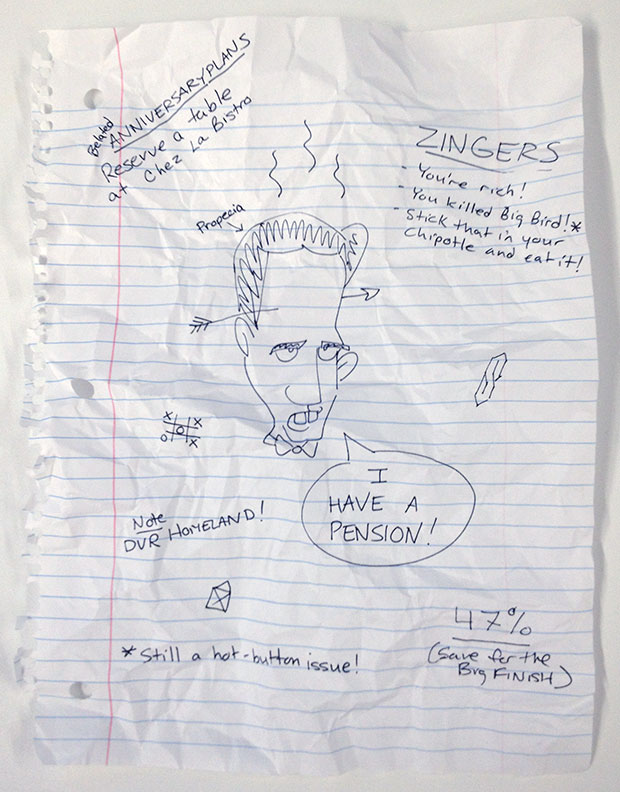 Belated
ANNIVERSARY PLANS
Reserve a table
at Chez La Bistro
ZINGERS
- You're rich!
- You killed Big Bird!*
- Stick that in your
Chipotle and eat it!
Propecia
X X
O
O X
I
HAVE A
PENSION!
Note
DVR HOMELAND!
47%
(Save for the
Big FINISH)
* Still a hot-button issue!